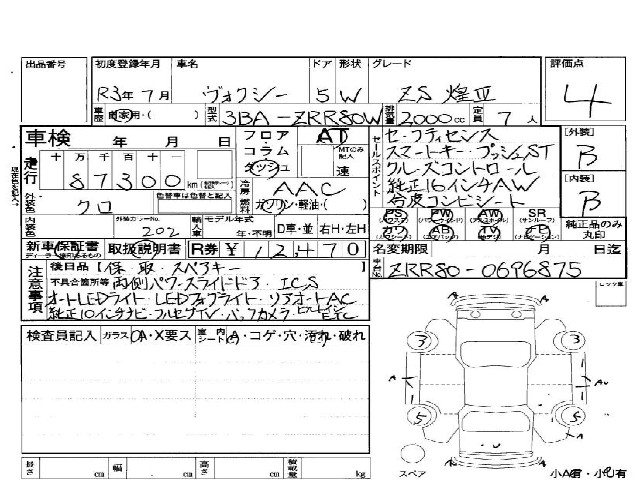 出品番号 初度登録年月 車名 ドア 形状 グレード 評価点
R3年7月 ヴォクシー 5 W ZS 煌Ⅲ 4
車歴 自家用・( ) 型式 3BA-ZRR80W 排気量 2000cc 定員 7人
車検 年 月 日 フロア AT セールスポイント セーフティセンス [外装]
走行 十 万 千 百 十 一 コラム MTのみ記入 スマートキー プッシュST B
87300 km ダッシュ 速 クルーズコントロール
外装色 クロ 色替車は色替と記入 冷房 AAC 純正16インチAW [内装]
燃料 ガソリン・軽油・( ) 合皮コンビシート B
内装色 外装カラーNo. 202 輸入車 モデル年式 年・不明 D車・並 右H・左H PS PW AW SR
カワ AB TV ナビ 純正品のみ丸印
新車保証書 取扱説明書 R券 ¥12,470 名変期限 月 日迄
注意事項 後日品 [保・取・スペアキー ZRR80-0696875
不具合箇所等 両側パワースライドドア・ICS
オートLEDライト・LEDフォグライト・リアオートAC
純正10インチナビ・フルセグTV・バックカメラ・ビルトインETC
検査員記入 ガラス OA・X要ス 室内 シート A・コゲ・穴・汚れ・破れ
3 3
A A
5 5
長さ cm 幅 cm 高さ cm 積載量 kg スペア 小A有・小U有